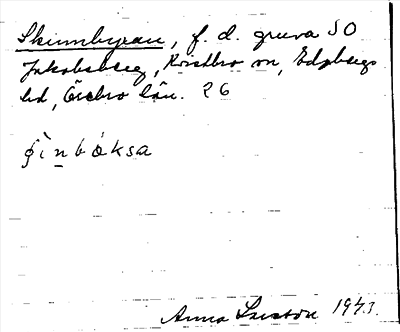 Skinnbyxan, f. d. gruva SO
Jakobsberg, Kvistbro sn, Edsbergs
hd, Örebro län. 26
ʃìnbòksa
Anna Larsson 1943.